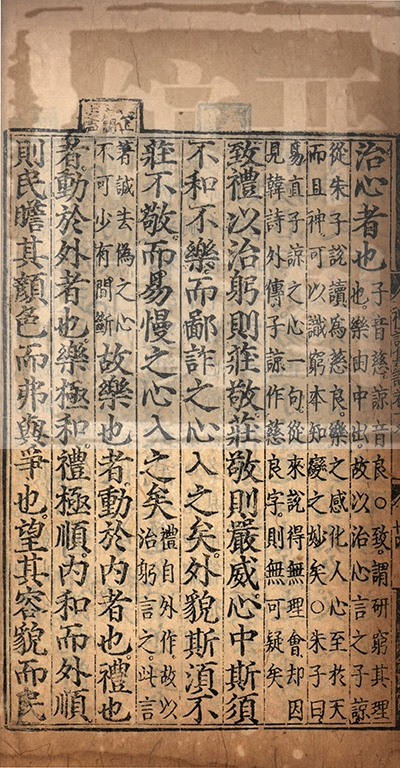 治心者也
子音慈諒音良○致謂研窮其理
也樂由中出故以治心言之子諒
從朱子說讀爲慈良樂之感化人心至於天
而且神可以識窮本知變之妙矣○朱子曰
易直子諒之心一句從來說得無理會却因
見韓詩外傳子諒作慈良字則無可疑矣
致禮以治躬則莊敬莊敬則嚴威心中斯須
不和不樂而鄙詐之心入之矣外貌斯湏不
莊不敬而易慢之心入之矣
禮自外作故以
治躬言之此言
著誠去僞之心
不可少有間斷
故樂也者動於內者也禮也
者動於外者也樂極和禮極順內和而外順
則民瞻其顏色而弗與爭也望其容貌而民